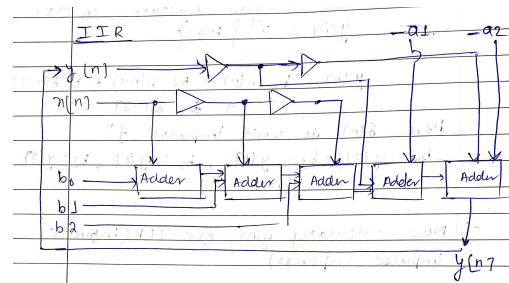 IIR
-a1 -a2
y[n]
x[n]
b0 Adder Adder Adder Adder Adder
b1
b2
y[n]